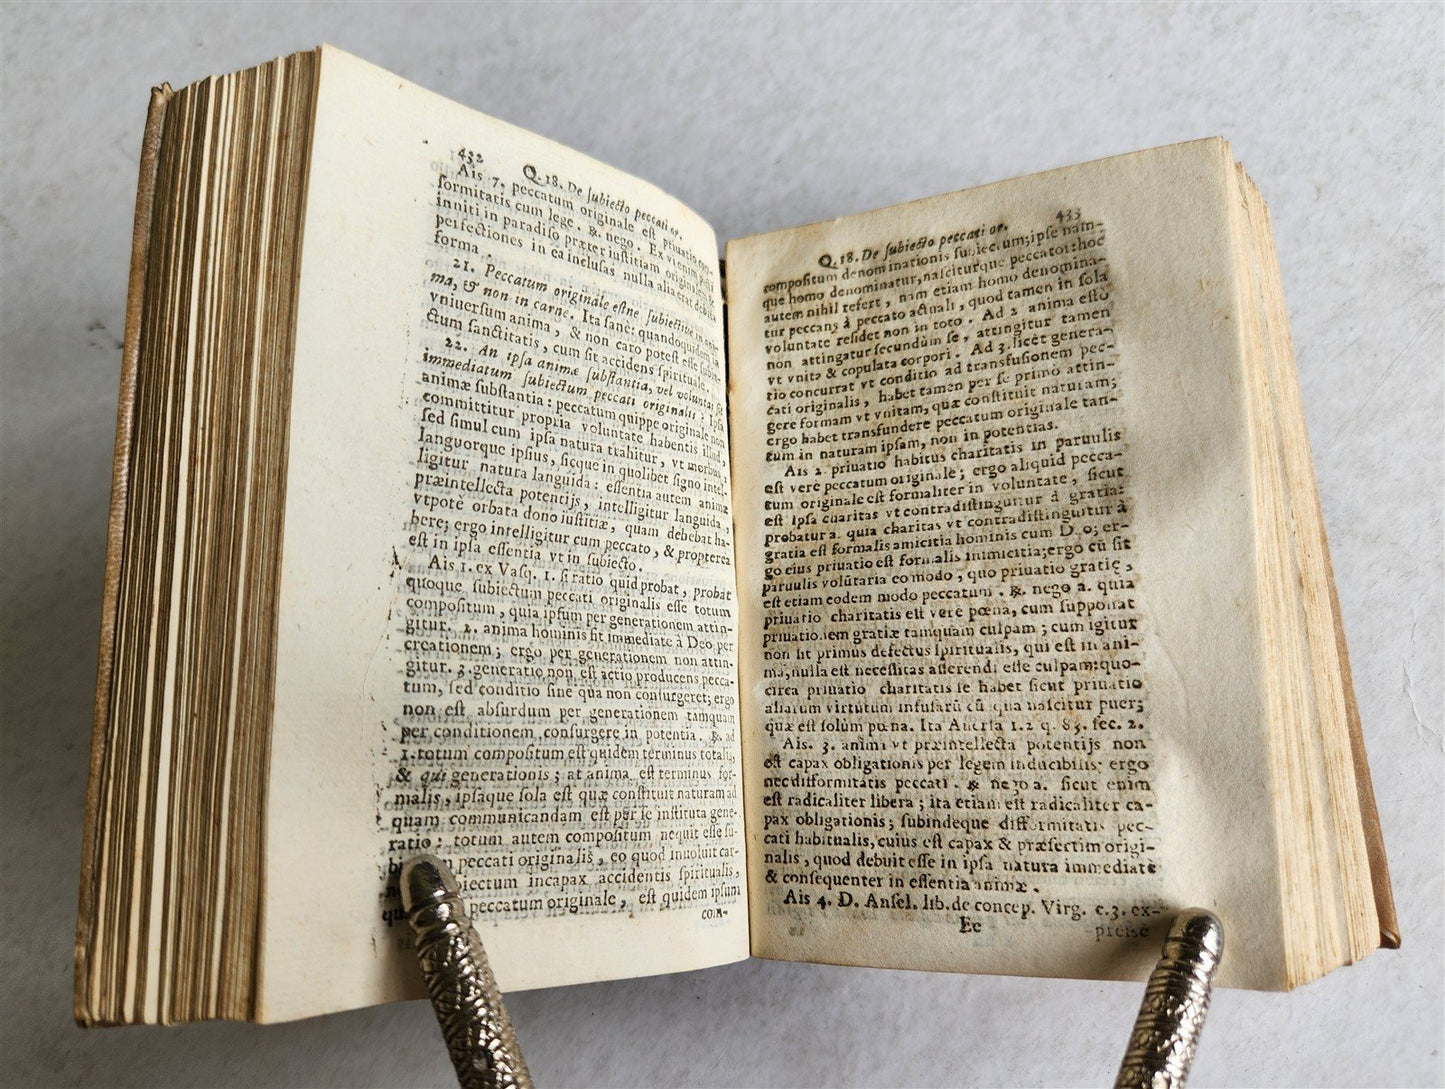 432
Q. 18. De ſubiecto peccati or.
Ais 7. peccatum originale eſt priuatio con-
formitatis cum lege. ℞. nego. Ex vi enim
inniti in paradiſo præter iuſtitiam originalem &
perfectiones in ea incluſas nulla alia erat debita
forma.
21. Peccatum originale eſtne ſubiectiuè in
ma, & non in carne. Ita ſanè: quandoquidem
vniuerſum anima, & non caro poteſt eſſe ſubie-
ctum ſanctitatis, cum ſit accidens ſpirituale.
22. An ipſa animæ ſubſtantia, vel voluntas ſit
immediatum ſubiectum peccati originalis? Ipſa
animæ ſubſtantia: peccatum quippe originale non
committitur propria voluntate habentis illud,
ſed ſimul cum ipſa natura trahitur, vt morbus,
languorque ipſius, ſicque in quolibet ſigno intel-
ligitur natura languida: eſſentia autem animæ
præintellecta potentijs, intelligitur languida,
vtpotè orbata dono iuſtitiæ, quam debebat ha-
bere; ergo intelligitur cum peccato, & propterea
eſt in ipſa eſſentia vt in ſubiecto.
Ais 1. ex Vaſq. 1. ſi ratio quid probat, probat
quoque ſubiectum peccati originalis eſſe totum
compoſitum, quia ipſum per generationem attin-
gitur. 2. anima hominis fit immediate à Deo per
creationem; ergo per generationem non attin-
gitur. 3. generatio non eſt actio producens pecca-
tum, ſed conditio ſine qua non conſurgeret; ergo
non eſt abſurdum per generationem tamquam
per conditionem conſurgere in potentia. ℞. ad
1. totum compoſitum eſt quidem terminus totalis,
& qui generationis; at anima eſt terminus for-
malis, ipſaque ſola eſt quæ conſtituit naturam ad
quam communicandam eſt per ſe inſtituta gene-
ratio; totum autem compoſitum nequit eſſe ſu-
peccati originalis, eo quod inuoluit car-
biectum incapax accidentis ſpiritualis,
peccatum originale, eſt quidem ipſum
com-
433
Q. 18. De ſubiecto peccati or.
compoſitum denominationis ſubiectum; ipſe nam-
que homo denominatur, naſciturque peccator: hoc
autem nihil refert, nam etiam homo denomina-
tur peccans à peccato actuali, quod tamen in ſola
voluntate reſidet non in toto. Ad 2. anima eſtò
non attingatur ſecundùm ſe, attingitur tamen
vt vnita & copulata corpori. Ad 3. licèt genera-
tio concurrat vt conditio ad transfuſionem pec-
cati originalis, habet tamen per ſe primò attin-
gere formam vt vnitam, quæ conſtituit naturam;
ergo habet transfundere peccatum originale tan-
tum in naturam ipſam, non in potentias.
Ais 2. priuatio habitus charitatis in paruulis
eſt verè peccatum originale; ergo aliquid pecca-
tum originale eſt formaliter in voluntate, ſicut
eſt ipſa charitas vt contradiſtinguitur à gratia:
probatur a. quia charitas vt contradiſtinguitur à
gratia eſt formalis amicitia hominis cum Deo; er-
go eius priuatio eſt formalis inimicitia; ergo cũ ſit
paruulis volũtaria eo modo, quo priuatio gratię,
eſt etiam eodem modo peccatum. ℞. nego a. quia
priuatio charitatis eſt verè pœna, cum ſupponat
priuationem gratiæ tamquam culpam; cum igitur
non ſit primus defectus ſpiritualis, qui eſt in ani-
ma, nulla eſt neceſſitas aſſerendi eſſe culpam: quo-
circa priuatio charitatis ſe habet ſicut priuatio
aliarum virtutum infuſarũ cũ qua naſcitur puer;
quæ eſt ſolùm pœna. Ita Auerſa 1. 2. q. 83. ſec. 2.
Ais. 3. anima vt præintellecta potentijs non
eſt capax obligationis per legem inducibilis: ergo
nec difformitatis peccati. ℞ nego a. ſicut enim
eſt radicaliter libera; ita etiam eſt radicaliter ca-
pax obligationis; ſubindeque difformitatis pec-
cati habitualis, cuius eſt capax & præſertim origi-
nalis, quod debuit eſſe in ipſa natura immediatè
& conſequenter in eſſentia animæ.
Ais 4. D. Anſel. lib. de concep. Virg. c. 3. ex-
Ee
preſsè